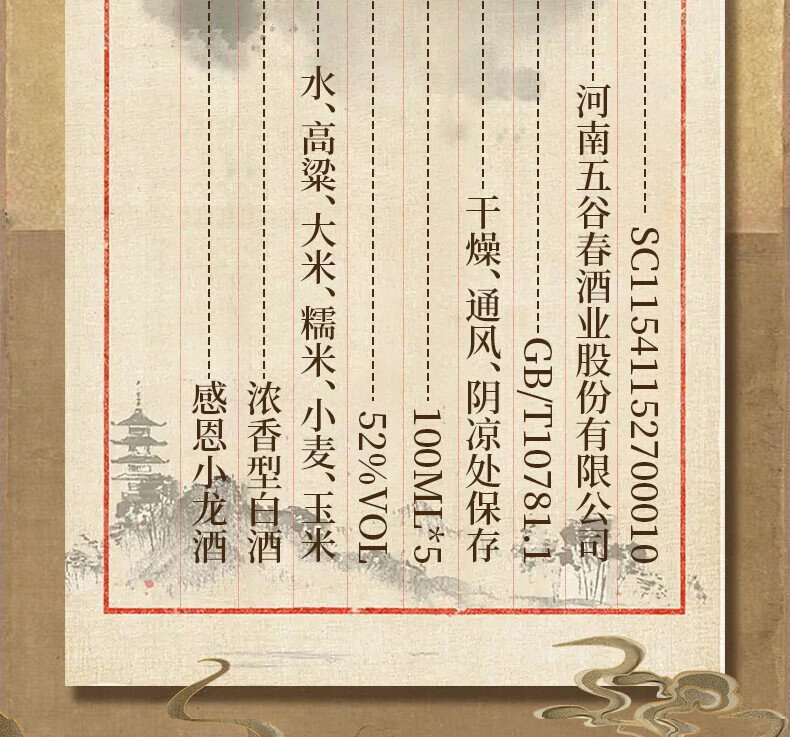 感恩小龙酒
浓香型白酒
水、高粱、大米、糯米、小麦、玉米
52%VOL
100ML*5
干燥、通风、阴凉处保存
GB/T10781.1
河南五谷春酒业股份有限公司
SC11541152700010